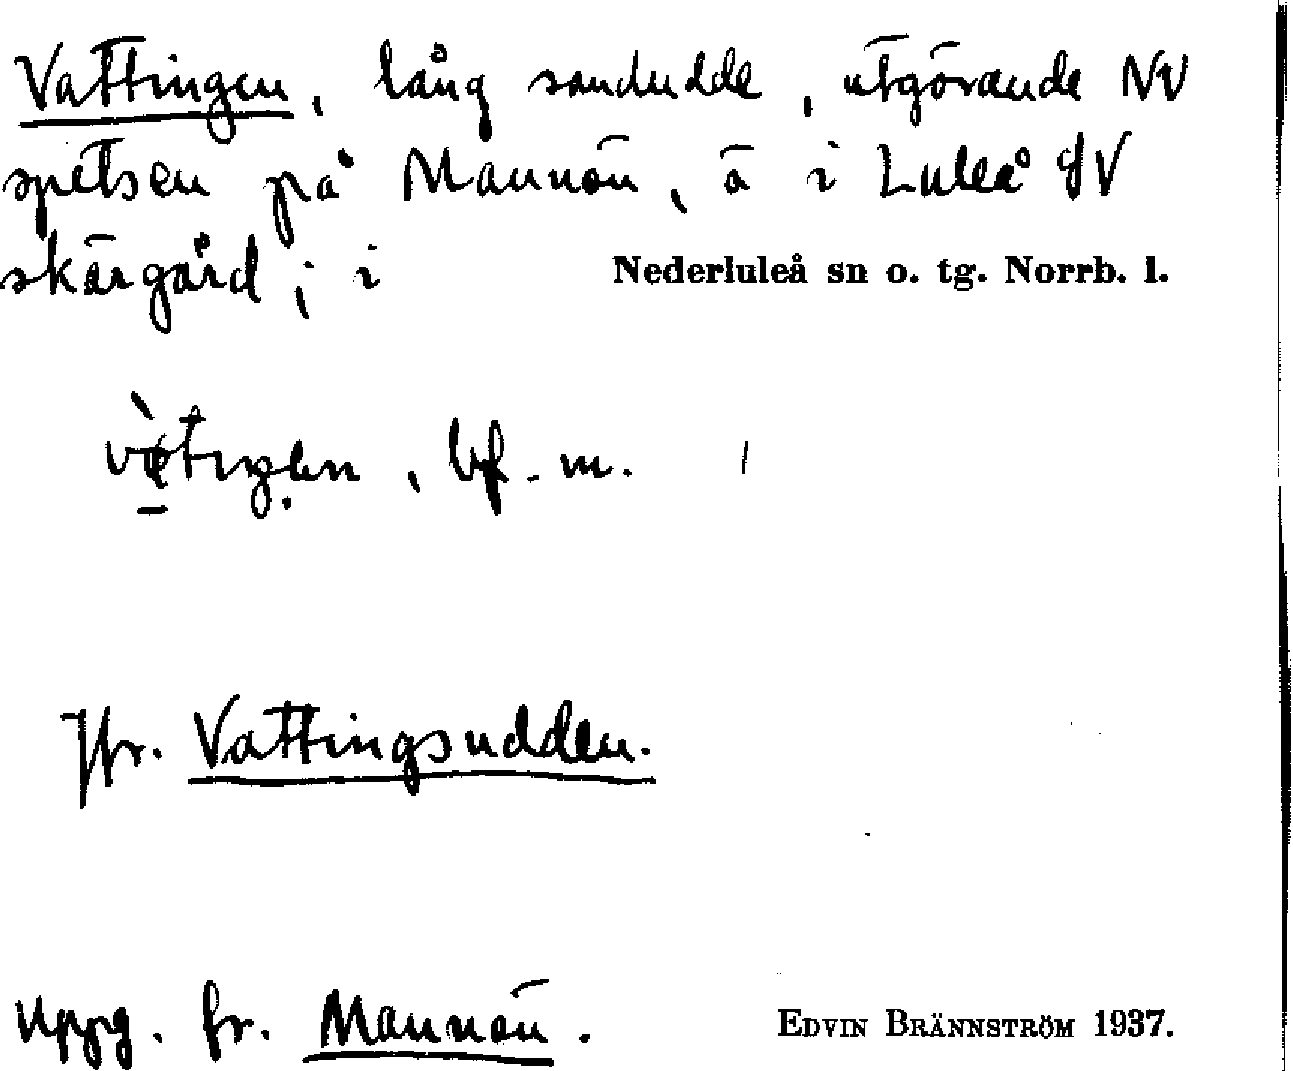 Vattingen, lång sandudde, utgörande NV
spetsen på Mannön, ö i Luleå SV
skärgård; i Nederluleå sn o. tg. Norrb. l.
bf. m.
Jfr. Vattingsudden.
Uppg. fr. Mannön. EDVIN BRÄNNSTRÖM 1937.